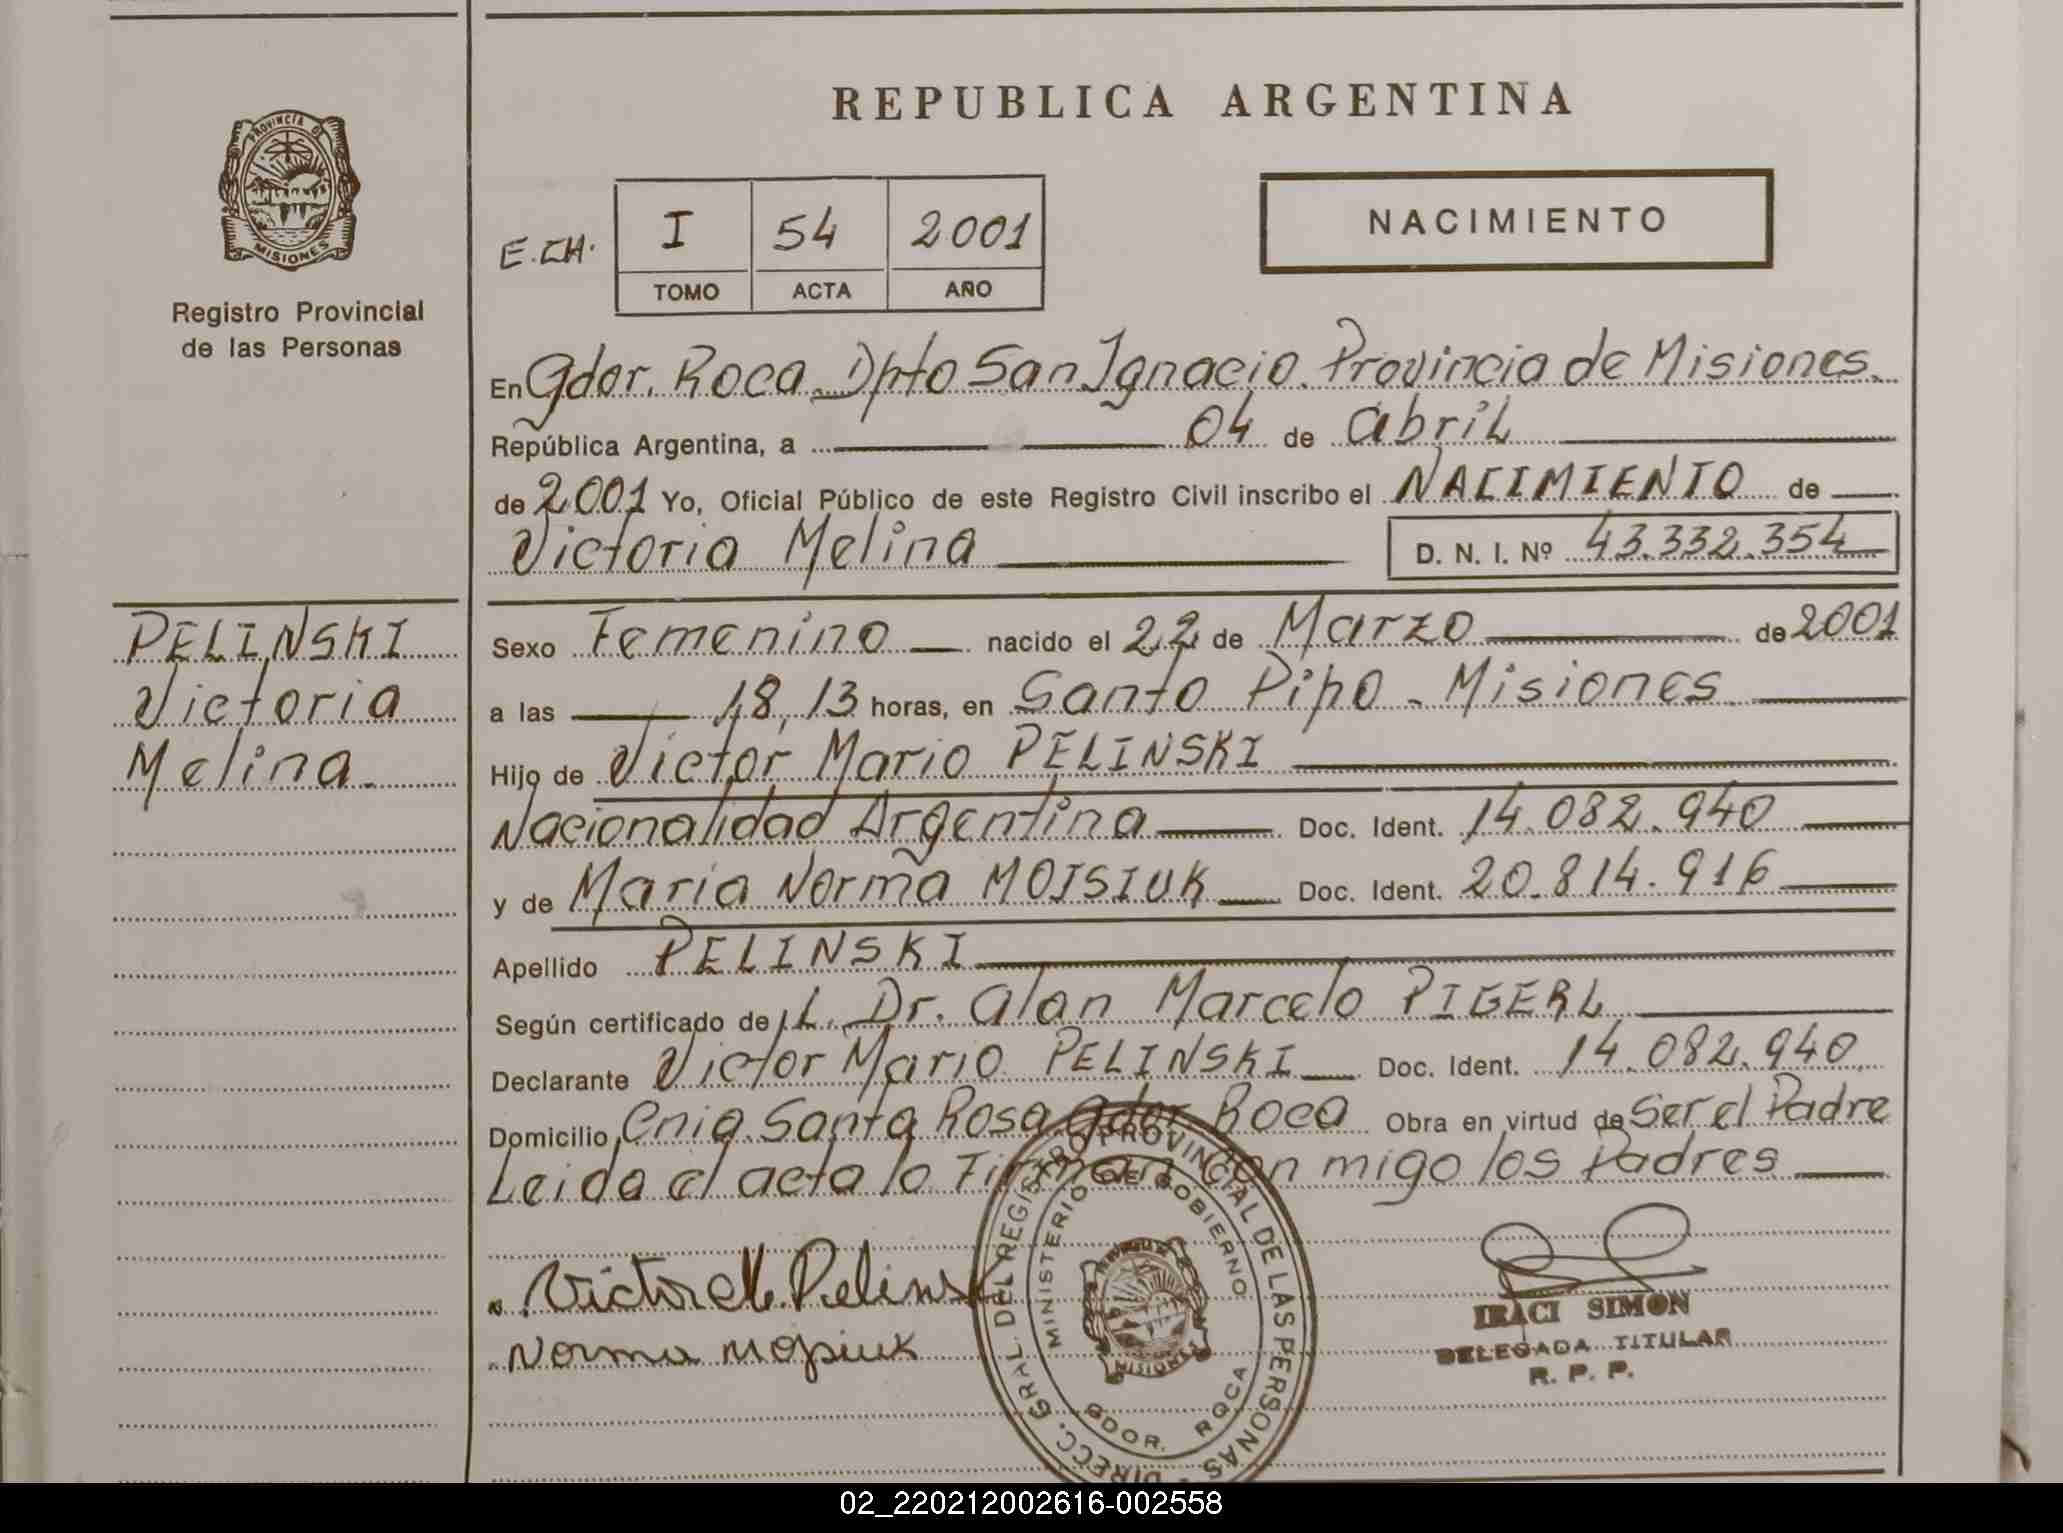 REPUBLICA ARGENTINA
PROVINCIA DE
MISIONES
Registro Provincial
de las Personas
E.CH.
I 54 2001
TOMO ACTA AÑO
NACIMIENTO
En Gdor. Roca Dpto San Ignacio Provincia de Misiones
República Argentina, a 04 de abril
de 2001 Yo, Oficial Público de este Registro Civil inscribo el NACIMIENTO de
Victoria Melina D. N. I. Nº 43.332.354
PELINSKI
Victoria
Melina.
Sexo Femenino nacido el 22 de Marzo de 2001
a las 18,13 horas, en Santo Pipo - Misiones
Hijo de Victor Mario PELINSKI
Nacionalidad Argentina Doc. Ident. 14.082.940
y de Maria Norma MOISIUK Doc. Ident. 20.814.916
Apellido PELINSKI
Según certificado de L. Dr. Alan Marcelo PIGERL
Declarante Victor Mario PELINSKI Doc. Ident. 14.082.940
Domicilio Cnia. Santa Rosa Gdor Roca Obra en virtud de Ser el Padre
Leida el acta la Firman con migo los Padres
Victor M. Pelinski
Norma Moisiuk
DIRECC. GRAL. DEL REGISTRO PROVINCIAL DE LAS PERSONAS
MINISTERIO DE GOBIERNO
MISIONES
GDOR. ROCA
IRACI SIMON
DELEGADA TITULAR
R. P. P.
02_220212002616-002558